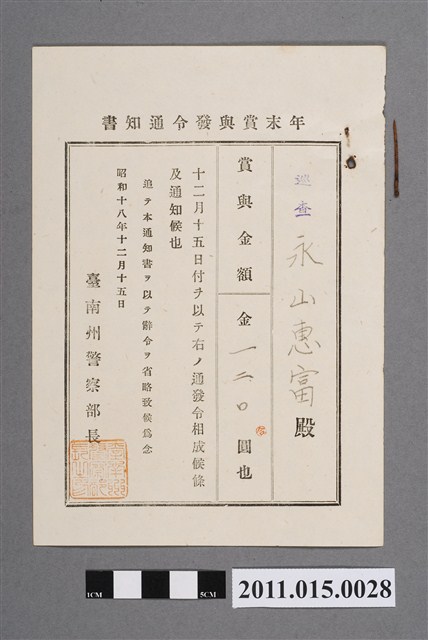 年末賞與發令通知書
巡查 永山惠富殿
賞與金額 金一二〇圓也
十二月十五日付ヲ以テ右ノ通發令相成候條
及通知候也
追テ本通知書ヲ以テ辭令ヲ省略致候爲念
昭和十八年十二月十五日
臺南州警察部長
1CM
5CM
2011.015.0028